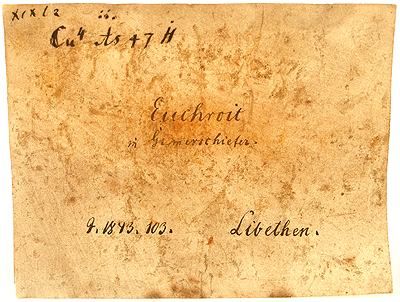 XIX 12
Cu⁴ Äs + 7 Ḣ
Euchroit
in Glimerschiefer.
g. 1843. 103. Libethen.